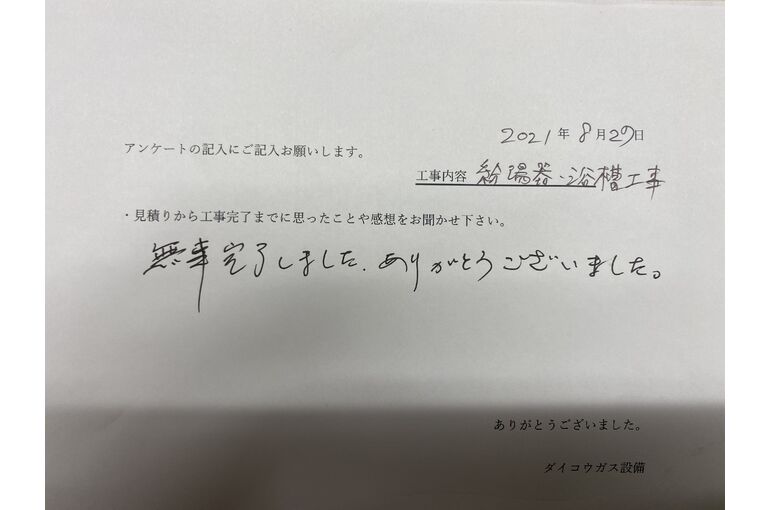 2021年8月29日
アンケートの記入にご記入お願いします。
工事内容 給湯器・浴槽工事
・見積りから工事完了までに思ったことや感想をお聞かせ下さい。
無事完了しました。ありがとうございました。
ありがとうございました。
ダイコウガス設備